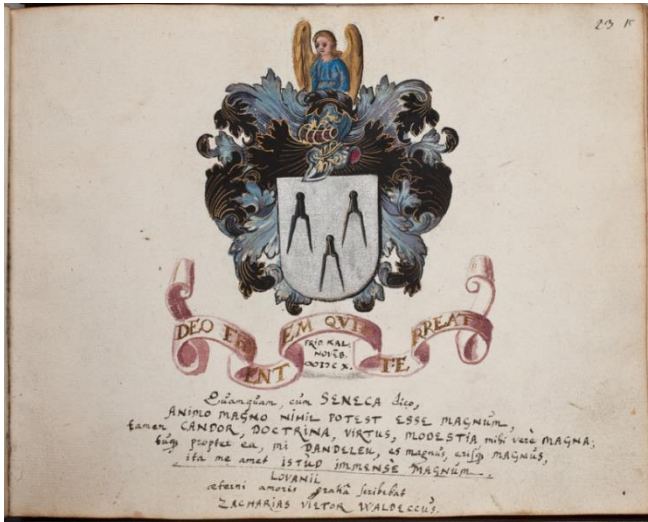 23 r
DEO
ENT
EM QVI
TE
RREAT
PRID. KAL:
NOVEB.
Quanquam, cum SENECA dico,
ANIMO MAGNO NIHIL POTEST ESSE MAGNUM,
tamen CANDOR, DOCTRINA, VIRTUS, MODESTIA mihi verè MAGNA;
propter ea, mi DANDELEU, es magnus, erisq MAGNUS,
ita me amet ISTUD IMMENSÈ MAGNUM.
LOVANII
æterni amoris gratiâ scribebat
ZACHARIAS VIETOR WALDECCUS.